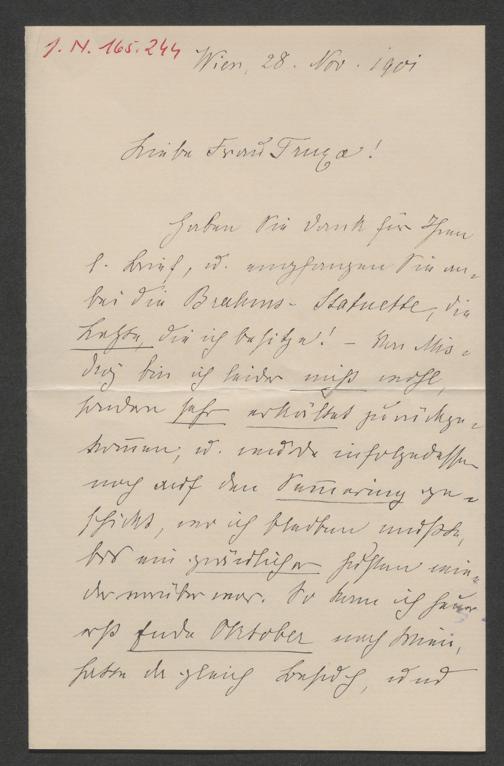 J. N. 165.244
Wien, 28. Nov. 1901
Liebe Frau Truxa!
Haben Sie Dank für Ihren
l. Brief, u. empfangen Sie an-
bei die Brahms-Statuette, die
Letzte, die ich besitze! – Von Mis-
droy bin ich leider nicht wohl,
sondern sehr erkältet zurückge-
kom̄en, u. wurde infolgedessen
noch auf den Sem̄ering ge-
schickt, wo ich bleiben mußte,
bis ein gründlicher Husten wie-
der vorüber war. So kam ich heuer
erst Ende Oktober nach Wien,
hatte da gleich Besuch, und